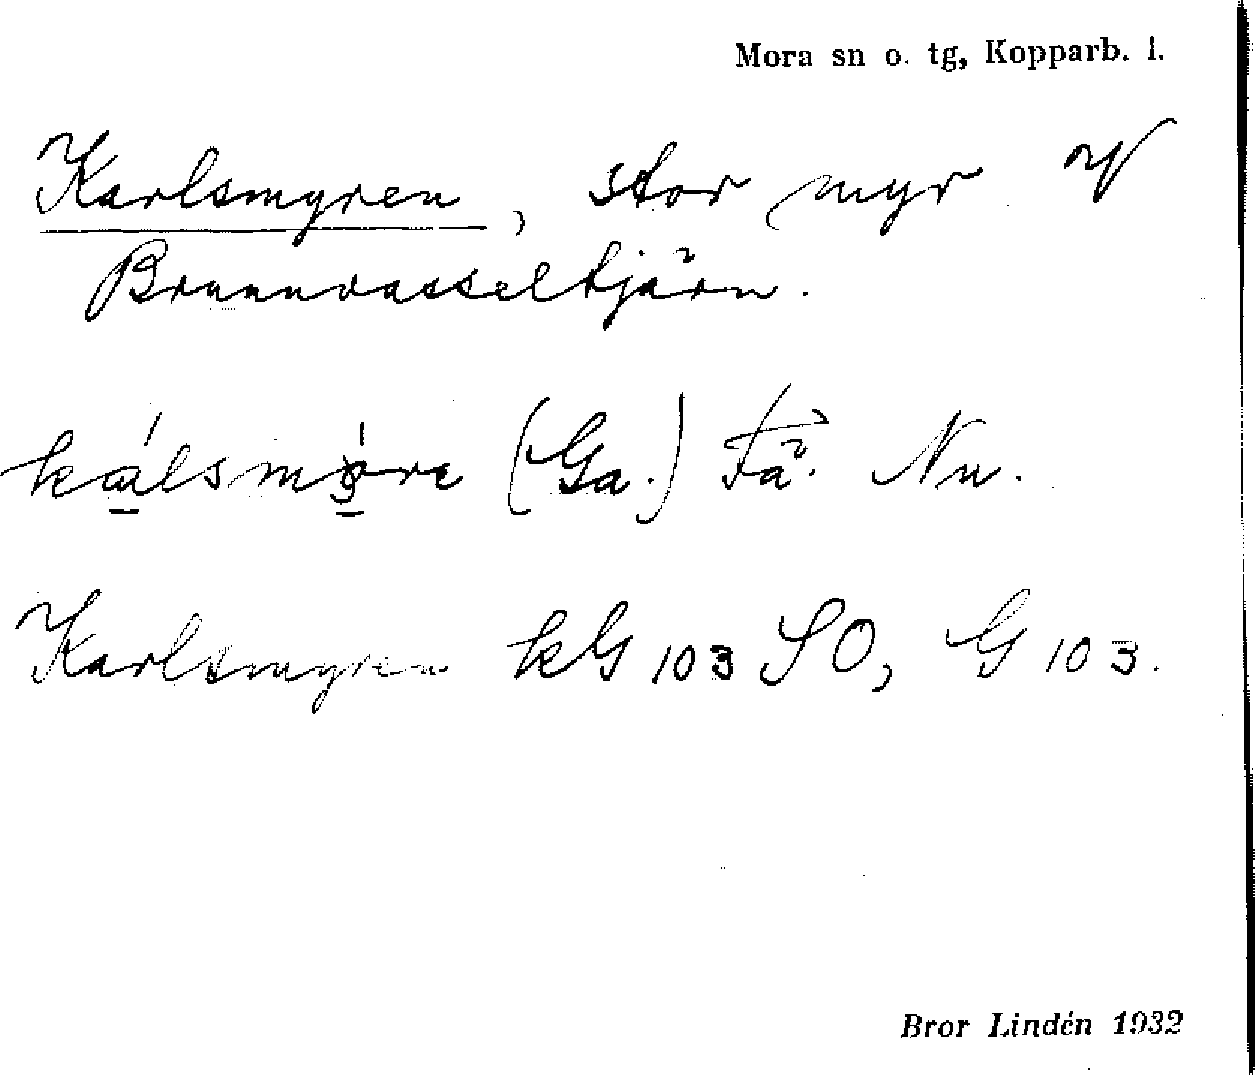 Mora sn o. tg, Kopparb. l.
Karlsmyren, stor myr V
Brunnvasseltjärn.
(Ga.) Få. Nu.
Karlsmyren kG 103 SO, G 103.
Bror Lindén 1932